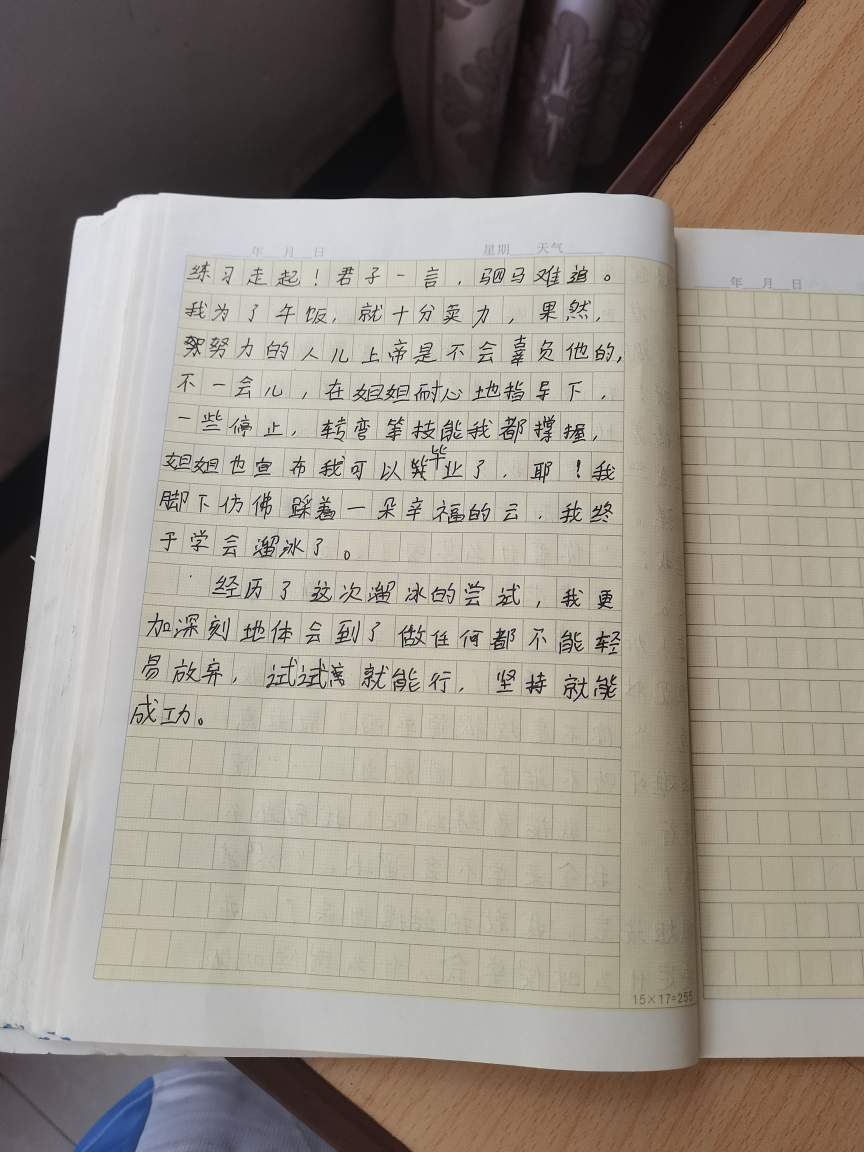 年 月 日 星期 天气
练习走起！君子一言，驷马难追。
我为了午饭，就十分卖力，果然，
努力的人儿上帝是不会辜负他的，
不一会儿，在姐姐耐心地指导下，
一些停止，转弯等技能我都撑握，
姐姐也宣布我可以毕业了．耶！我
脚下仿佛踩着一朵辛福的云．我终
于学会溜冰了。
经历了这次溜冰的尝试，我更
加深刻地体会到了做任何都不能轻
易放弃，试试就能行，坚持就能
成功。
15×17=255
年 月 日